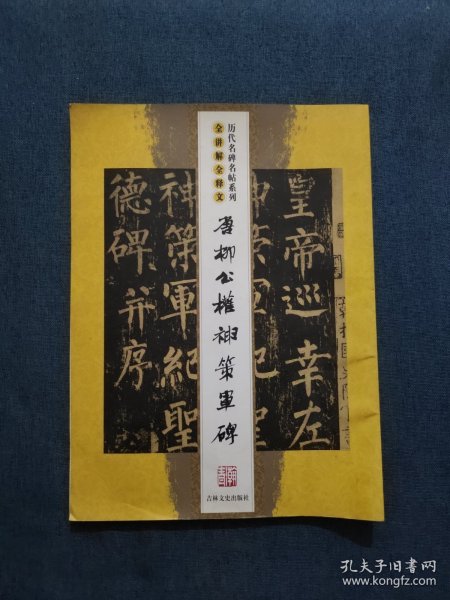 历代名碑名帖系列
全讲解全释文
唐柳公权神策军碑
吉林文史出版社
皇帝巡幸左
神策军纪聖
神策軍紀聖
德碑并序
孔夫子旧书网
www.kongfz.com